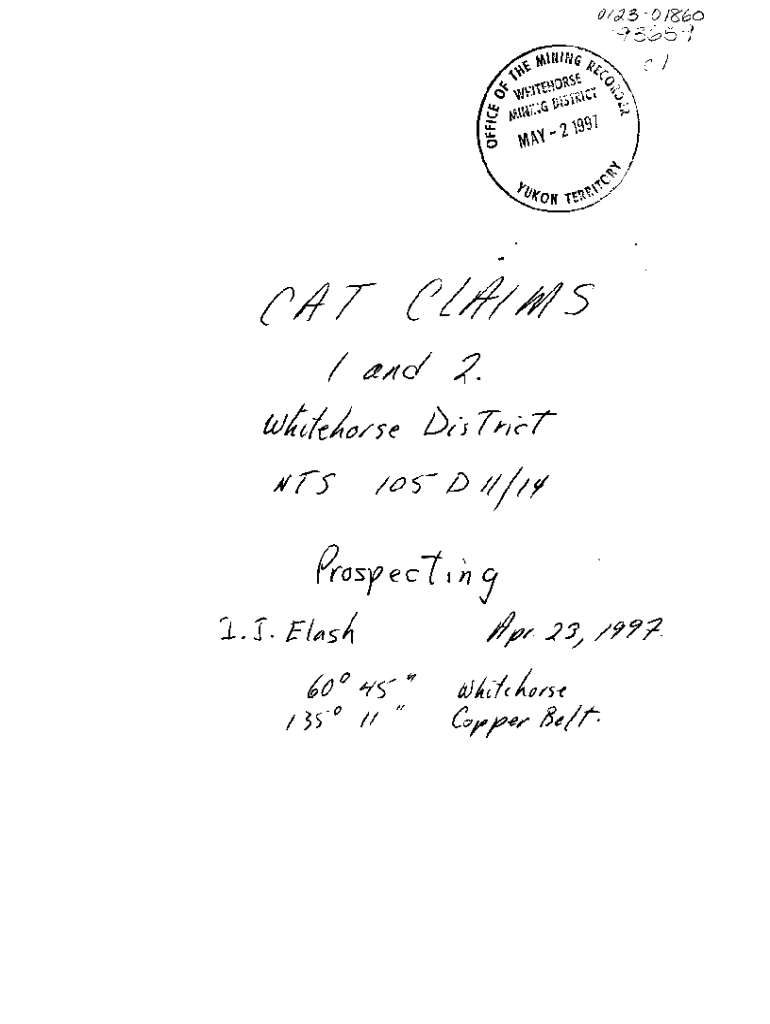 0123-01860
93659
c1
OFFICE OF THE MINING RECORDER
WHITEHORSE
MINING DISTRICT
MAY - 2 1997
YUKON TERRITORY
CAT CLAIMS
1 and 2.
Whitehorse District
NTS 105 D 11/14
Prospecting
I.J. Elash Apr. 23, 1997.
60° 45" Whitehorse
135° 11" Copper Belt.